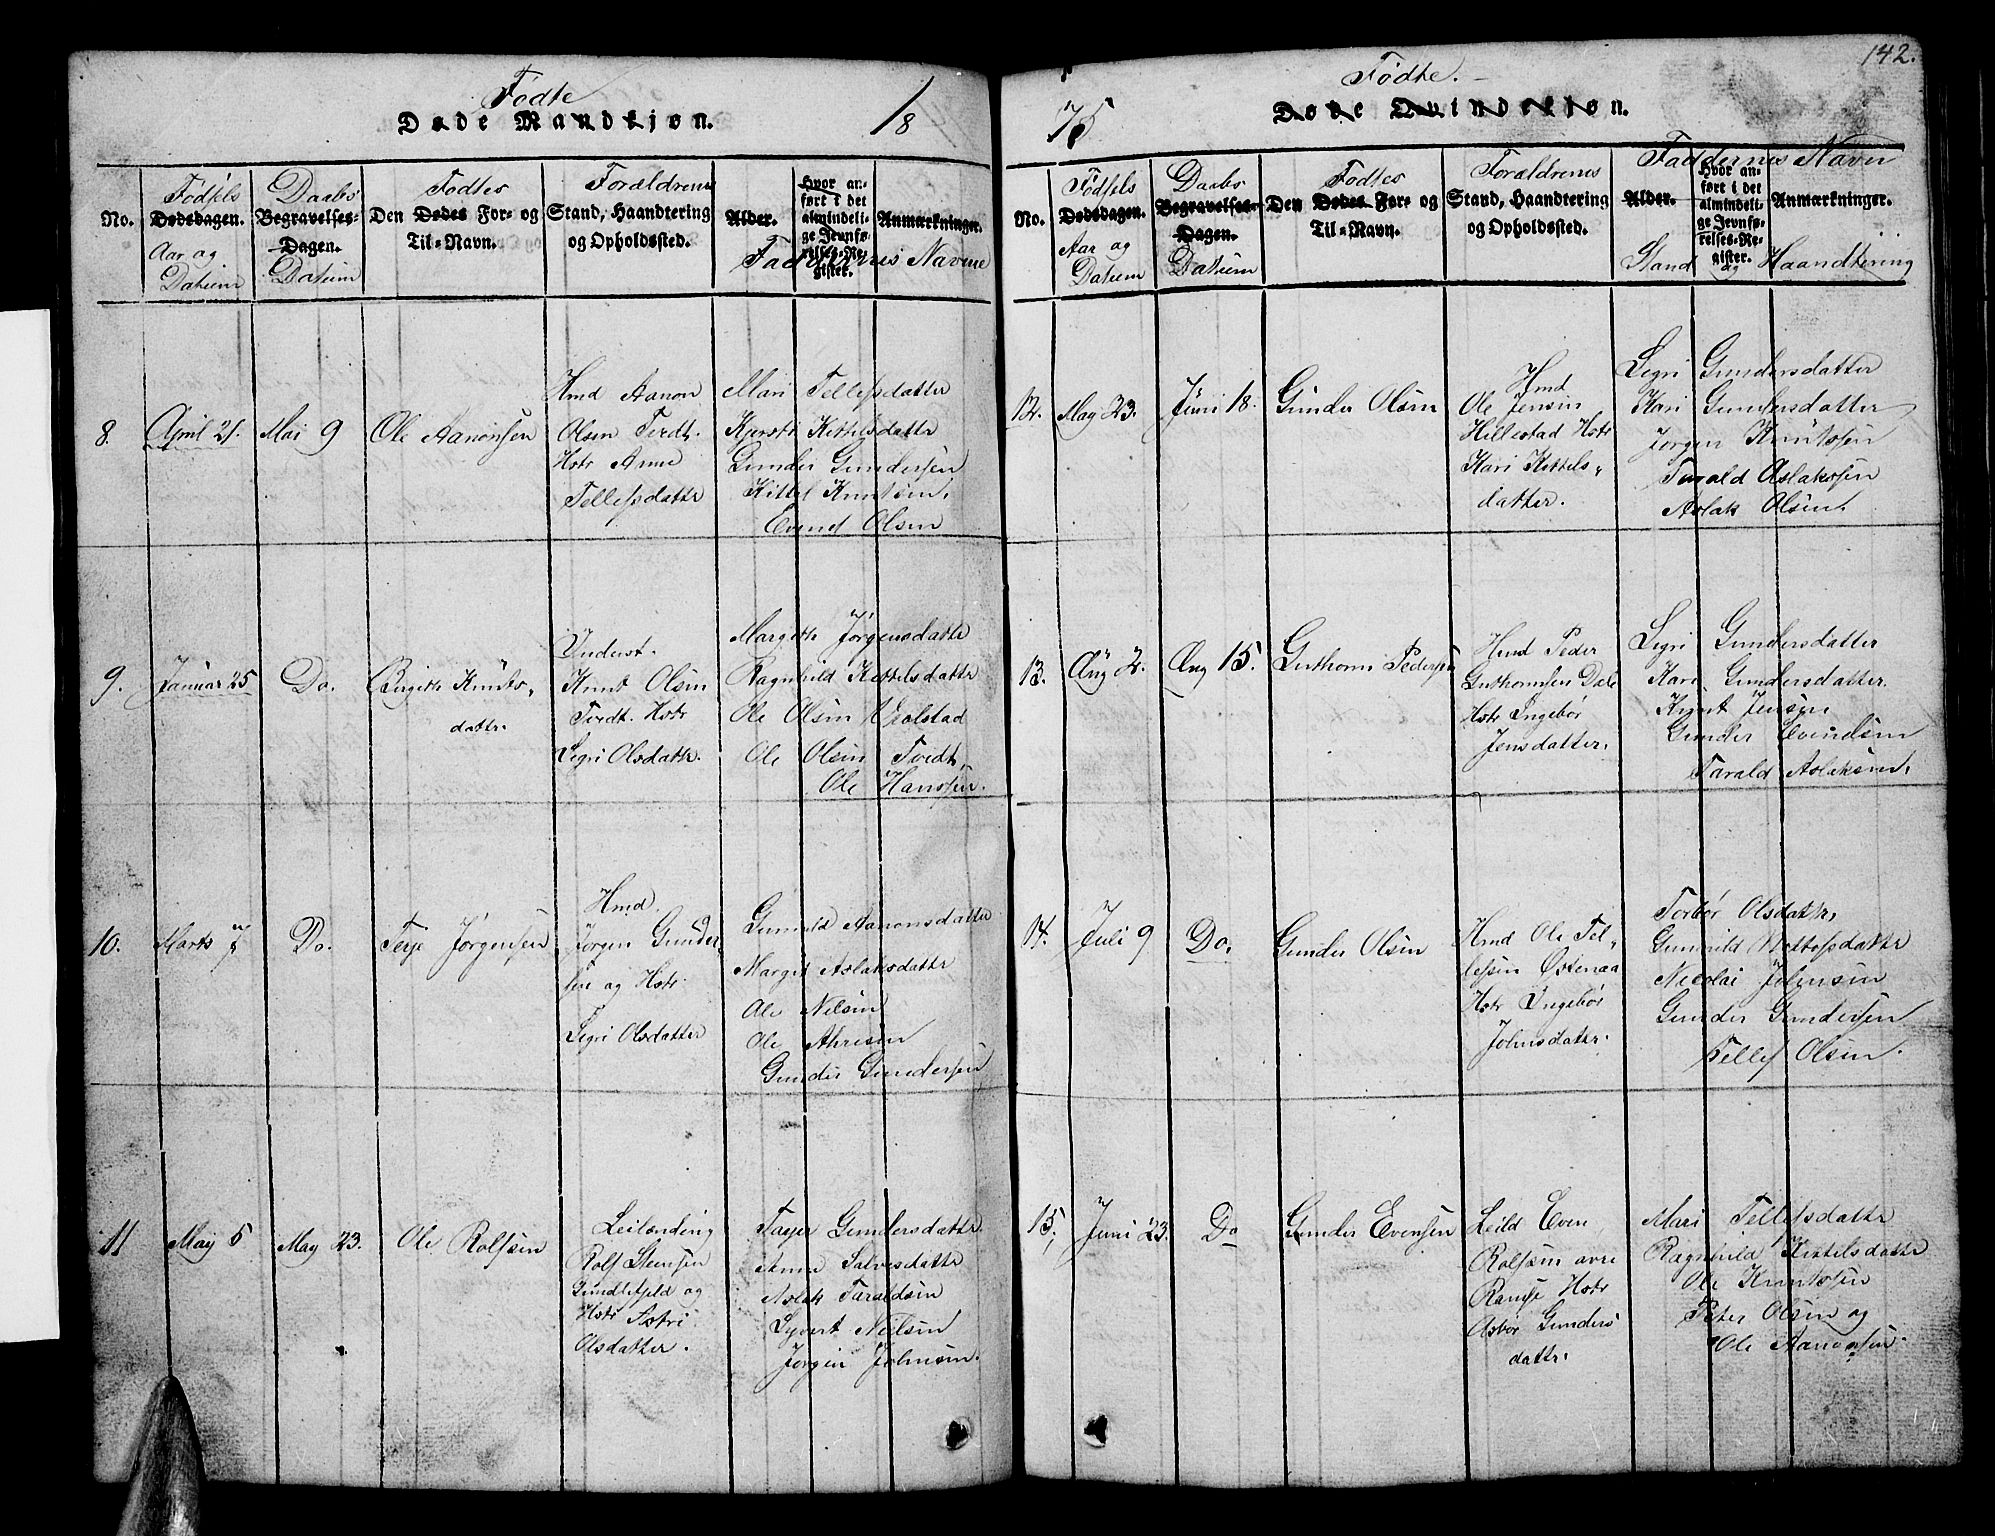 142.
Fødte
Døde Mandkjøn.
18
No.
Fødsels
Dødsdagen.
Aar og
Datum
Daabs
Begravelses-
Dagen.
Datum
Fødtes
Den Dødes For- og
Til-Navn.
Forældrenes
Stand, Haandtering
og Opholdssted.
Alder.
Hvor an-
ført i det
almindeli-
ge Jevnfø-
relses-Re-
gister.
Anmærkninger.
Faddernes Navne
8.
April 21.
Mai 9
Ole Aanonsen
Hmd Aanon
Olsen Tvedt.
Hstr Anne
Tellefsdattr
Mari Tellefsdattr
Kjersti Kittelsdattr
Gunder Gundersen
Kittel Knutsen.
Evend Olsen
9.
Januar 25
Do.
Birgithe Knuts-
dattr.
Inderst.
Knut Olsen
Tvedt. Hstr
Segri Olsdattr.
Margith Jørgensdattr
Ragnhild Kittelsdattr
Ole Olsen Veolstad
Ole Olsen Tvedt,
Ole Hanssen.
10.
Marts 7
Do.
Teje Jørgensen
Hmd.
Jørgen Gunder-
sen og Hstr.
Segri Olsdatter
Gunild Aanonsdattr
Margit Aslaksdattr
Ole Nilsen
Ole
Gunder Gundersen
11
May 5
May 23.
Ole Rolfsen
Leilænding
Rolf Steensen
og
Hstr Astri
Olsdatter.
Taeje Gundersdattr.
Anne Salvesdattr
Aslak Taraldsen
Syvert Nielsen
Jørgen Johnsen.
Fødte.
Døde Qvindekjøn.
75
No.
Fødsels
Dødsdagen.
Aar og
Datum
Daabs
Begravelses-
Dagen.
Datum
Fødtes
Den Dødes For- og
Til-Navn.
Forældrenes
Stand, Haandtering
og Opholdssted.
Faddernes Navn
Alder.
Hvor an-
ført i det
almindeli-
ge Jevnfø-
relses-Re-
gister.
Anmærkninger.
Stand og Haandtering
12.
May 23.
Juni 18.
Gunder Olsen
Hmd
Ole Jensen
Hillestad Hstr
Kari Kittels-
datter.
Segri Gundersdatter
Kari Gundersdatter
Jørgen Knutsen
Tarald Aslaksen
Aslak Olsen.
13.
Aug 2.
Aug 15.
Guthorm Pedersen
Hmd Peder
Guthormsen Dale
Hstr Ingebør
Jensdatter.
Segri Gundersdatter
Kari Gundersdatter.
Knut Jensen
Gunder Evendsen
Tarald Aslaksen.
14.
Juli 9
Do.
Gunder Olsen
Hmd Ole Tel-
lefsen Østenaa
Hstr Ingebør
Johnsdattr.
Torbør Olsdattr,
Gunild Nottofsdattr
Nicolai Johnsen
Gunder Gundersen
Tellef Olsen.
15,
Juni 23.
Do
Gunder Evensen
Leild Even
Rolfsen øvre
Ramse Hstr
Asbør Gunders
dattr.
Mari Tellefsdattr
Ragnhild Kittelsdattr
Ole Knutsen
Peter Olsen og
Ole Aanonsen.